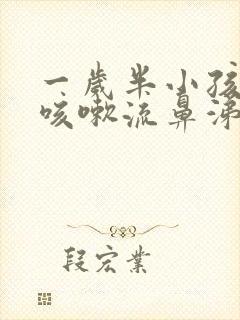 一岁半小孩
咳嗽流鼻涕
段宏业